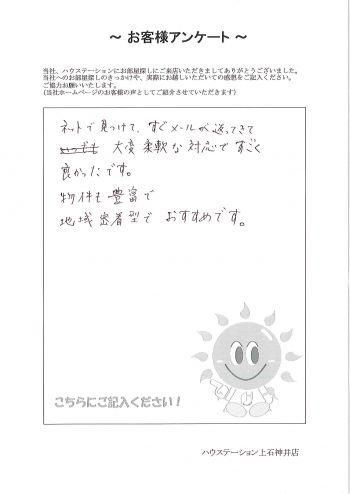 ～ お客様アンケート ～
当社、ハウステーションにお部屋探しにご来店いただきましてありがとうございました。
当社へのお部屋探しのきっかけや、実際にお越しいただいての感想をご記入ください。
ご協力お願いいたします。
(当社ホームページのお客様の声としてご紹介させていただきます)
ネットで見つけて、すぐメールが返ってきて
大変柔軟な対応ですごく
良かったです。
物件も豊富で
地域密着型でおすすめです。
こちらにご記入ください！
ハウステーション上石神井店